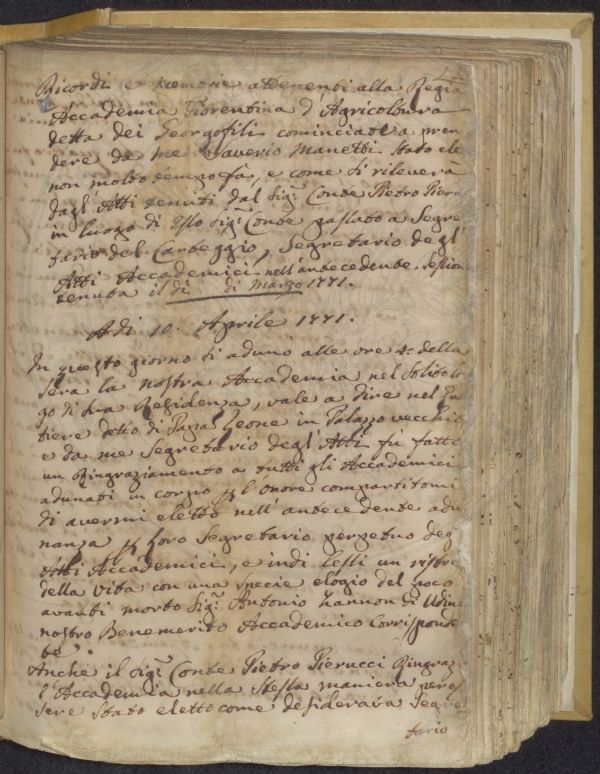 Ricordi e memorie attenenti alla Regia
Accademia Fiorentina d'Agricoltura
detta dei Georgofili cominciate a pren
dere da me Saverio Manetti stato ele
non molto tempo fà, e come si rileverà
dagl'Atti tenuti dal Sigr. Conte Pietro Pieru
in luogo di esso Sigr. Conte passato a Segre
tario del Carteggio, Segretario degl'
Atti Accademici nell'antecedente Session
tenuta il dì di Marzo 1771.
Adì 10. Aprile 1771.
In questo giorno si adunò alle ore 4. della
sera la nostra Accademia nel solito
go di sua Residenza, vale a dire nel Qu
tiere detto di Papa Leone in Palazzo vecchio
e da me Segretario degl'Atti fù fatto
un Ringraziamento a tutti gli Accademici
adunati in corpo p l'onore compartitomi
di avermi eletto nell'antecedente adu
nanza p loro Segretario perpetuo deg
Atti Accademici, e indi lessi un ristre
della vita con una specie elogio del poco
avanti morto Sigr. Antonio Zannon di Udine
nostro Benemerito Accademico Corrisponde
te.
Anche il Sigr. Conte Pietro Pierucci Ringraz
l'Accademia nella stessa maniera per es
sere stato eletto come desiderava Segre
tario